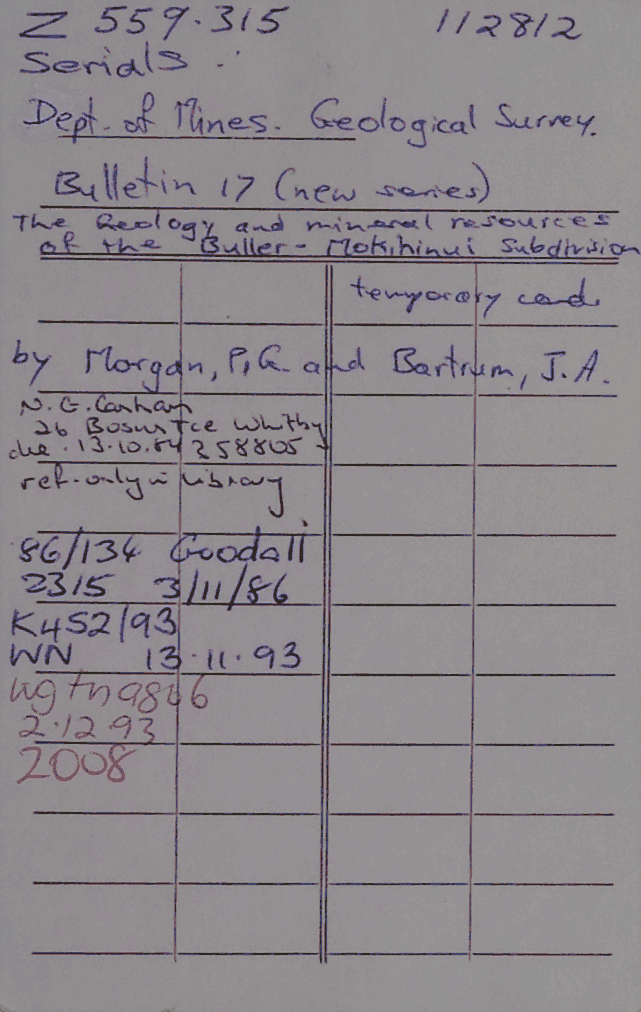 Z 559.315 112812
Serials
Dept. of Mines. Geological Survey.
Bulletin 17 (new series)
The Geology and mineral resources
of the Buller-Mokihinui Subdivision
temporary card.
by Morgan, P.G. and Bartrum, J.A.
N.G.
26 Whitby
due 13.10.84 258805
ref. only in library
86/134 Goodall
2315 3/11/86
K452/93
WN 13.11.93
2.12.93
2008